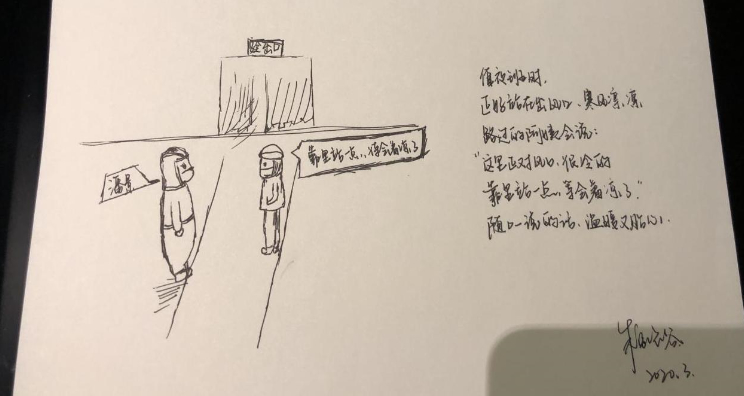 潘景
靠里站一点，待会着凉了
值夜班时，
正好站在出风口、寒风凛凛
路过的阿姨会说：
“这里正对风口，很冷的
靠里站一点，等会着凉了”
随口一说的话、温暖又贴心、
2020.3.